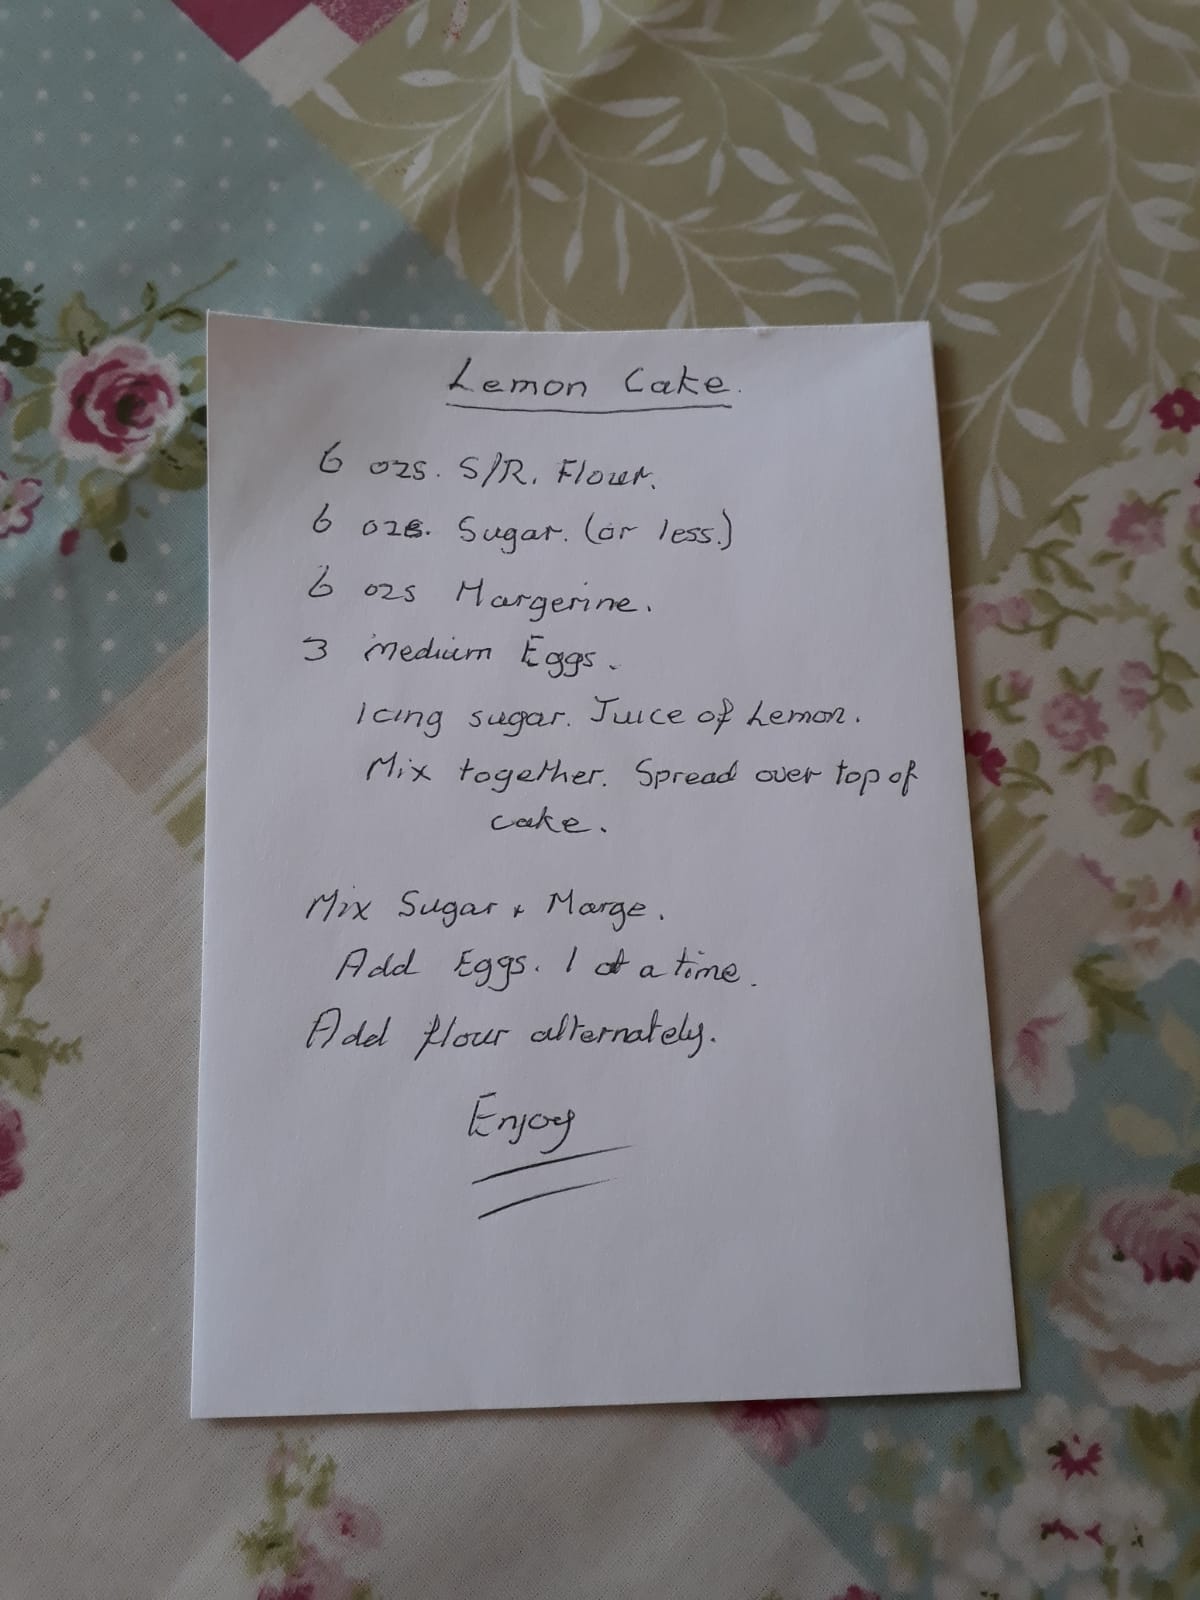 Lemon Cake.
6 ozs. S/R. Flour.
6 ozs. Sugar. (or less.)
6 ozs Margerine.
3 Medium Eggs.
Icing sugar. Juice of Lemon.
Mix together. Spread over top of
cake.
Mix Sugar + Marge.
Add Eggs. 1 at a time.
Add flour alternately.
Enjoy